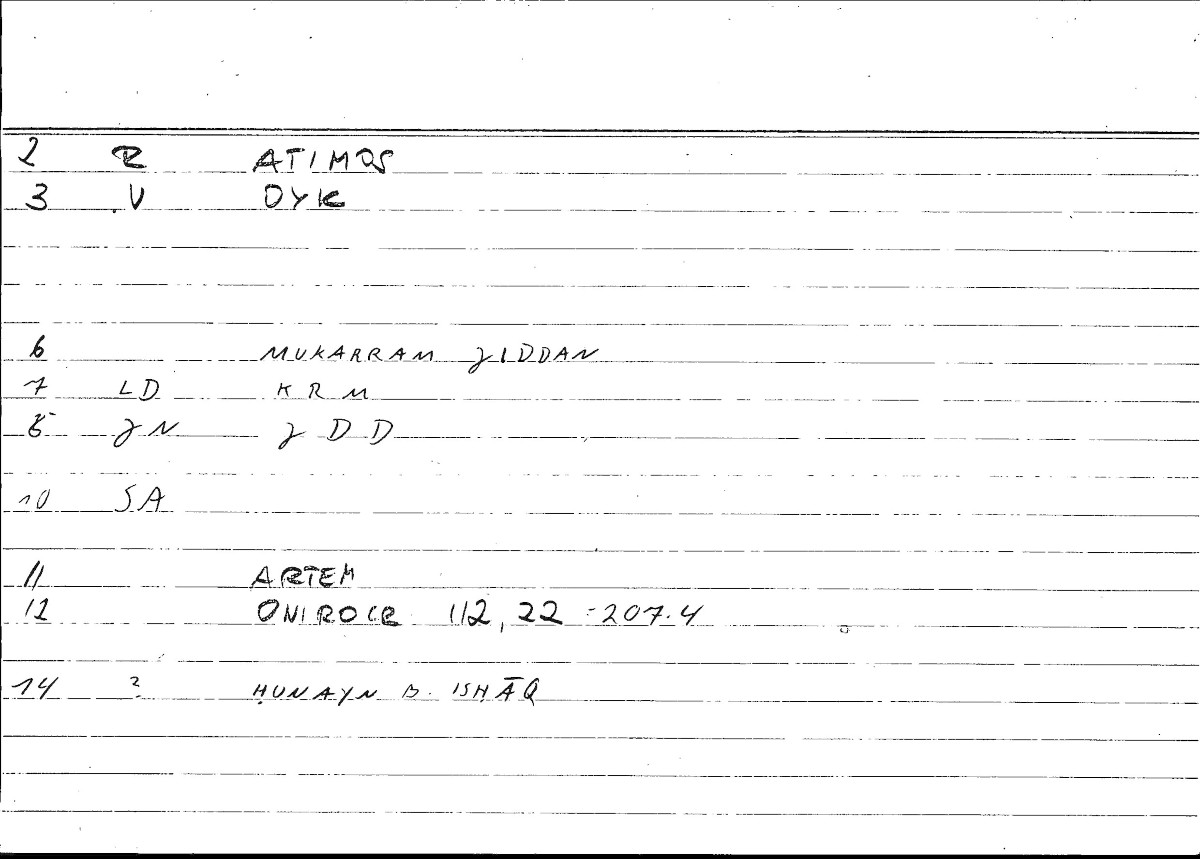 2 R ATIMOS
3 V DYK
6 MUKARRAM ӡIDDAN
7 LD KRM
8 ӡN ӡDD
10 SA
11 ARTEM
12 ONIROCR 112,22 = 207.4
14 ? ḤUNAYN B. ISḤĀQ